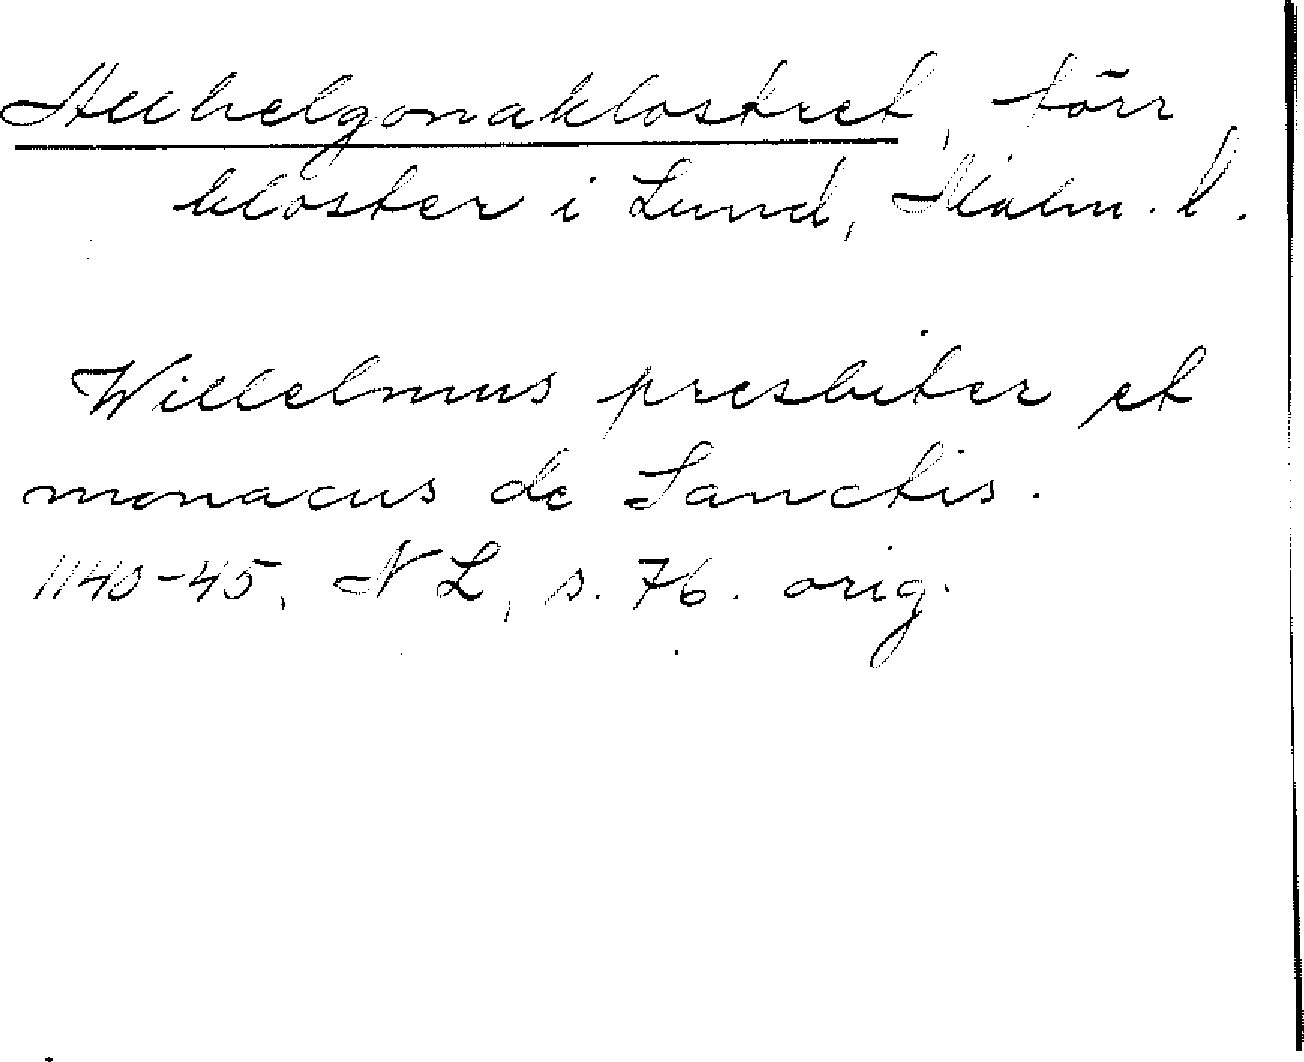 Allhelgonaklostret, förr
kloster i Lund, Malm. l.
Willelmus presbiter et
monacus de Sanctis.
1140-45, NL, s. 76. orig.